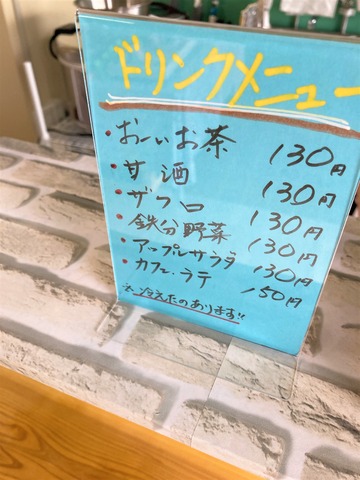 ドリンクメニュー
・おーいお茶 130円
・甘酒 130円
・ザクロ 130円
・鉄分野菜 130円
・アップルサラダ 130円
・カフェ・ラテ 150円
※冷えたのあります!!